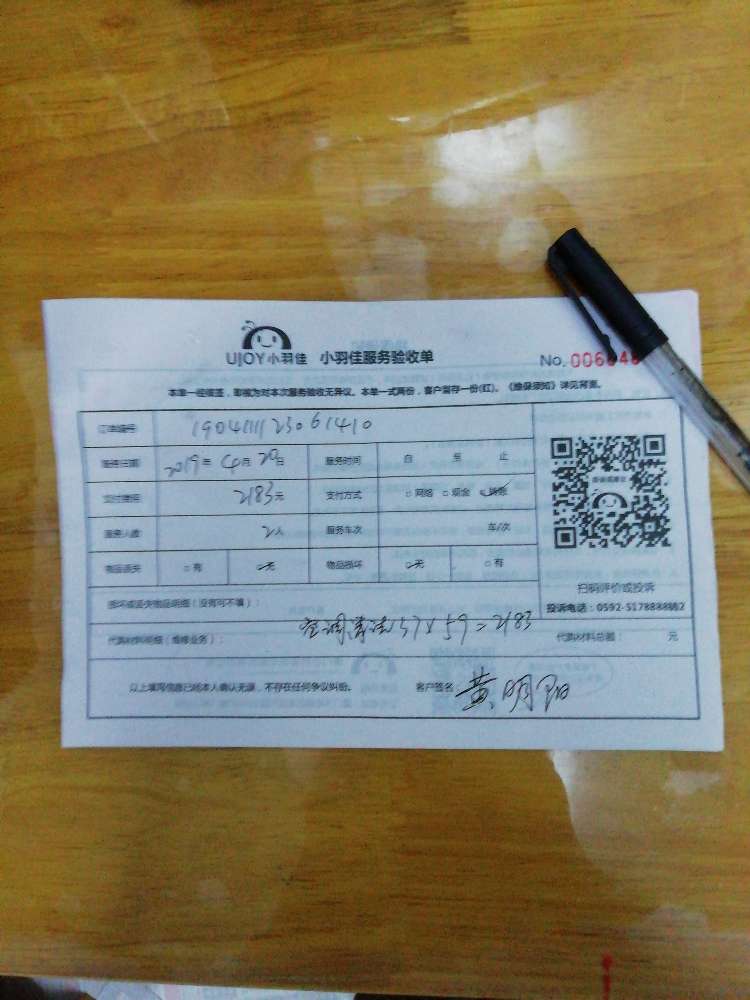 UJOY小羽佳 小羽佳服务验收单 No.
本单一经签送，即视为对本次服务验收无异议。本单一式两份，客户留存一份(红)。《维保须知》详见背面。
订单编号 190411123061410
服务日期 2019年4月20日 服务时间 自 至 止
支付费用 2183元 支付方式 □网络 □现金 转账
服务人数 2人 服务车次 车/次
物品丢失 □有 无 物品损坏 无 □有
扫码评价或投诉
损坏或丢失物品明细（没有可不填）： 投诉电话：0592-5178888转2
代购材料明细（维修业务）： 空调清洗37×59=2183 代购材料总额： 元
以上填写信息已经本人确认无误，不存在任何争议纠纷。 客户签名： 黄明阳